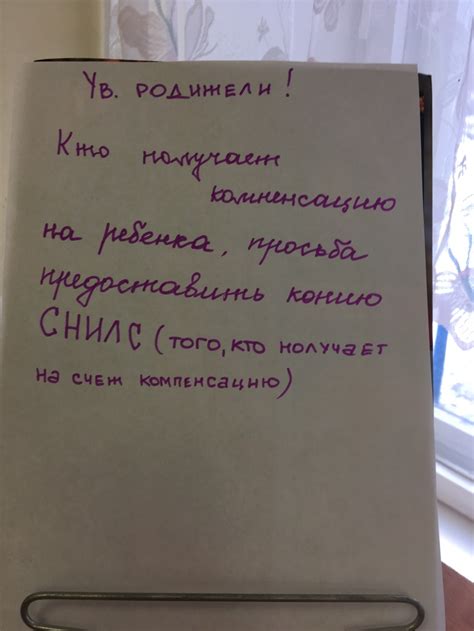 Ув. родители!
Кто получает
компенсацию
на ребенка, просьба
предоставить копию
СНИЛС (того, кто получает
на счет компенсацию)